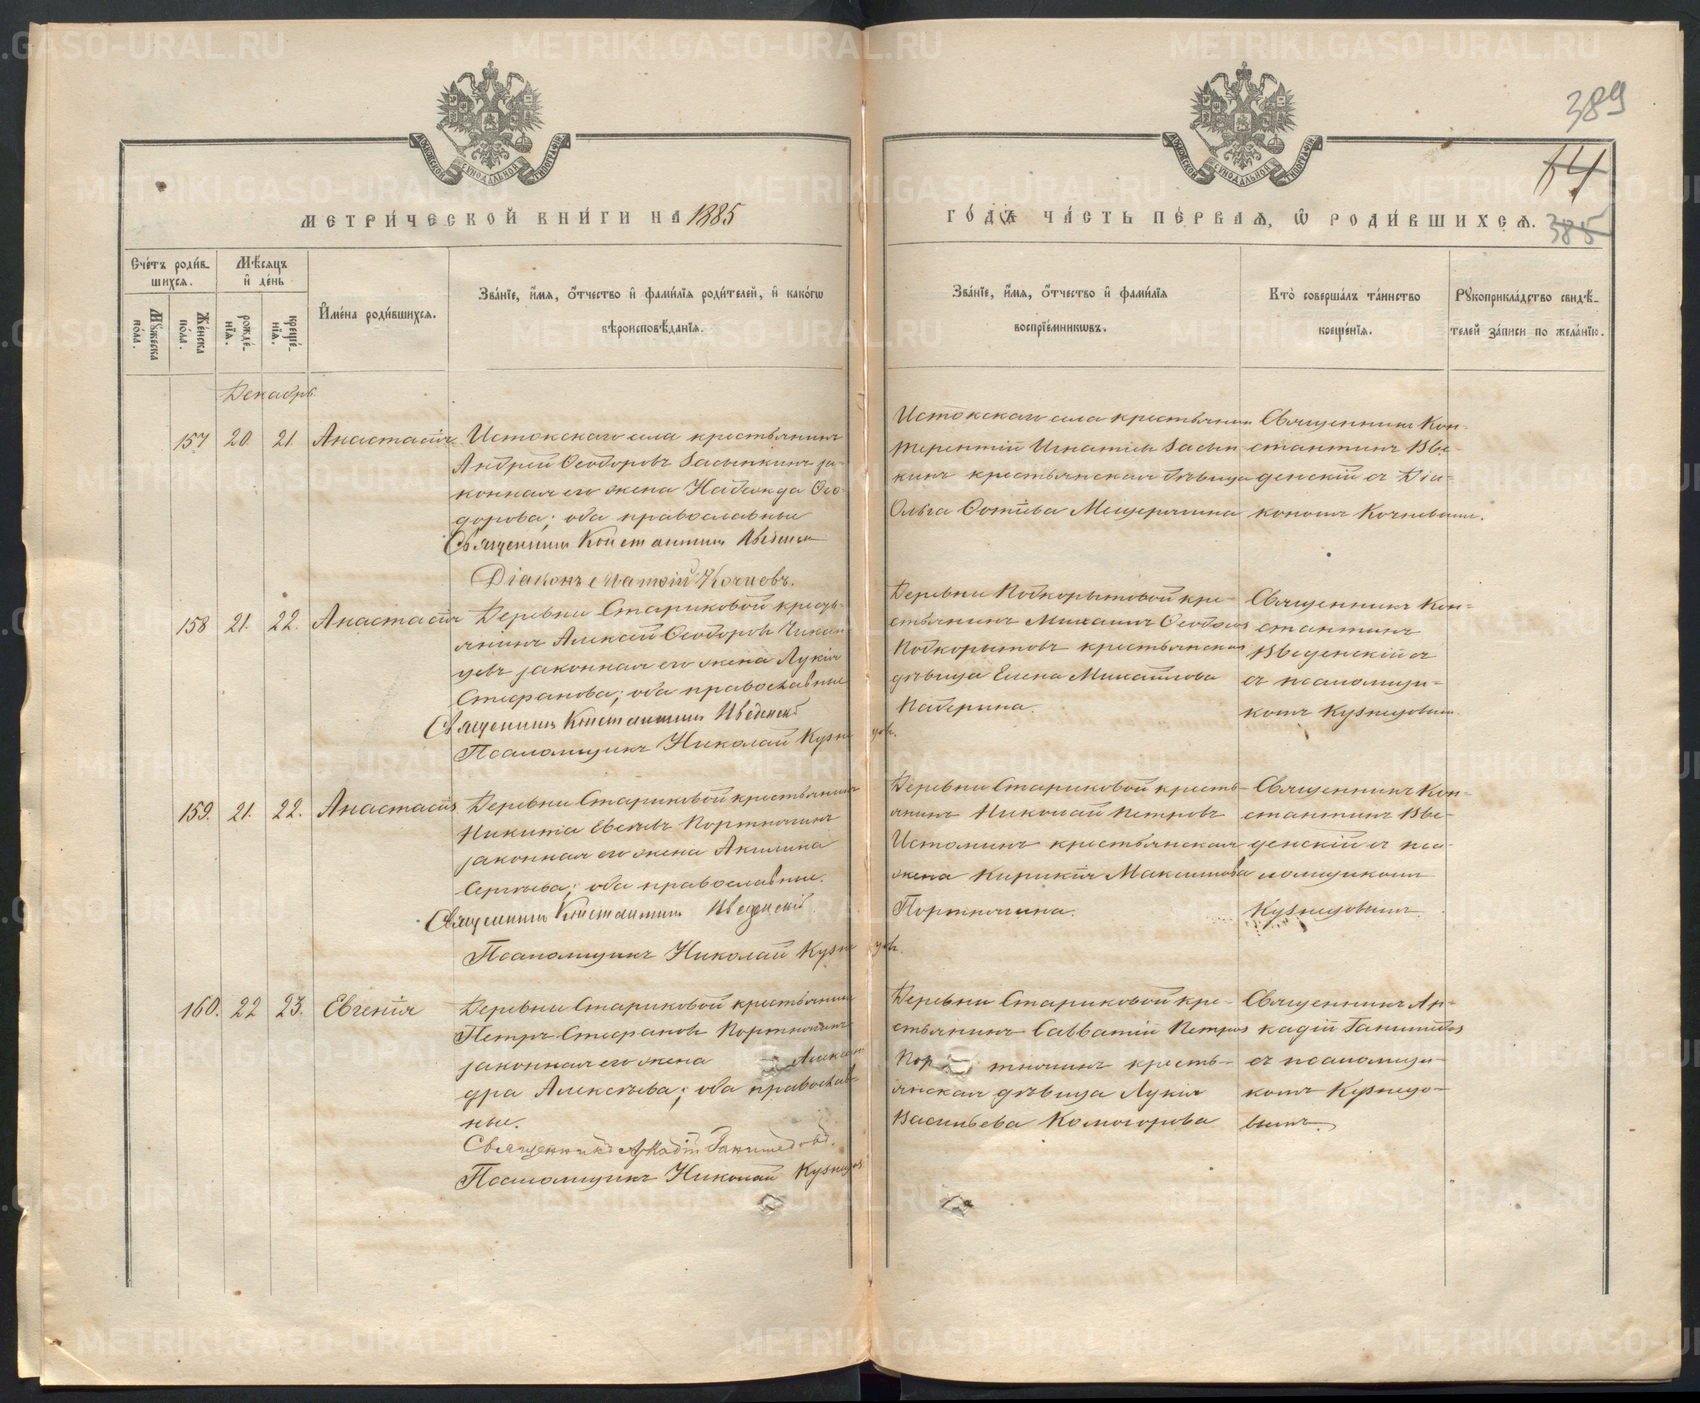 389
14
385
МЕТРИ́ЧЕСКОЙ КНИ́ГИ НА 1885
ГО́ДЪ ЧА́СТЬ ПЕ́РВАѦ, Ѽ РОДИ́ВШИХСѦ.
Сче́тъ роди́в-
шихся.
Мѣ́сяцъ
и҆ де́нь
Му́жеска
по́ла.
Же́нска
по́ла.
рожде́-
нїя.
креще́-
нїя.
И҆мена̀ роди́вшихся.
Зва́нїе, и҆́мя, ѻ҆́тчество и҆ фами́лїя роди́телей, и҆ како́гѡ
вѣроисповѣ́данїя.
Зва́нїе, и҆́мя, ѻ҆́тчество и҆ фами́лїя
воспрїе́мникѡвъ.
Кто̀ соверша́лъ та́инство
креще́нїя.
Рꙋкоприкла́дство свидѣ́-
телей за́писи по жела́нїю.
Декабрь
157 20. 21. Анастасія
Истокскаго села крестьянинъ
Андрей Ѳеодоровъ Засыпкинъ за-
конная его жена Надежда Ѳео-
дорова; оба православные
Священникъ Константинъ Введенскій
Діаконъ Матѳій Кочневъ.
Истокскаго села крестьянинъ
Терентій Игнатіевъ Засып-
кинъ крестьянская дѣвица
Ольга Фотіева Мещерягина
Священникъ Кон-
стантинъ Вве-
денскій съ Діа-
кономъ Кочневымъ.
158 21. 22. Анастасія
Деревни Стариковой кресть-
янинъ Алексѣй Ѳеодоровъ
законная его жена Лукія
Стефанова; оба православные
Священникъ Константинъ Введенскій
Псаломщикъ Николай Кузнецовъ.
Деревни Подкорытовой кре-
стьянинъ Михаилъ Ѳеодоровъ
Подкорытовъ крестьянская
дѣвица Елена Михайлова
Священникъ Кон-
стантинъ
Введенскій съ
съ псаломщи-
комъ Кузнецовымъ
159. 21. 22. Анастасія
Деревни Стариковой крестьянинъ
Никита Портнягинъ
законная его жена Акилина
Сергѣева; оба православные.
Священникъ Константинъ Введенскій
Псаломщикъ Николай Кузнецовъ.
Деревни Стариковой кресть-
янинъ Николай Петровъ
Истоминъ крестьянская
жена Кирикія Максимова
Портнягина.
Священникъ Кон-
стантинъ Вве-
денскій съ пса-
ломщикомъ
Кузнецовымъ
160. 22 23. Евгенія
Деревни Стариковой крестьянинъ
Петръ Стефановъ Портнягинъ
законная его жена Алексан-
дра Алексѣева; оба православ-
ные.
Священникъ Аркадій Ганимедовъ.
Псаломщикъ Николай Кузнецовъ
Деревни Стариковой кре-
стьянинъ Савватій Петровъ
Портнягинъ кресть-
янская дѣвица Лукія
Васильева Комогорова
Священникъ Ар-
кадій Ганимедовъ
съ псаломщи-
комъ Кузнецо-
вымъ.
METRIKI.GASO-URAL.RU